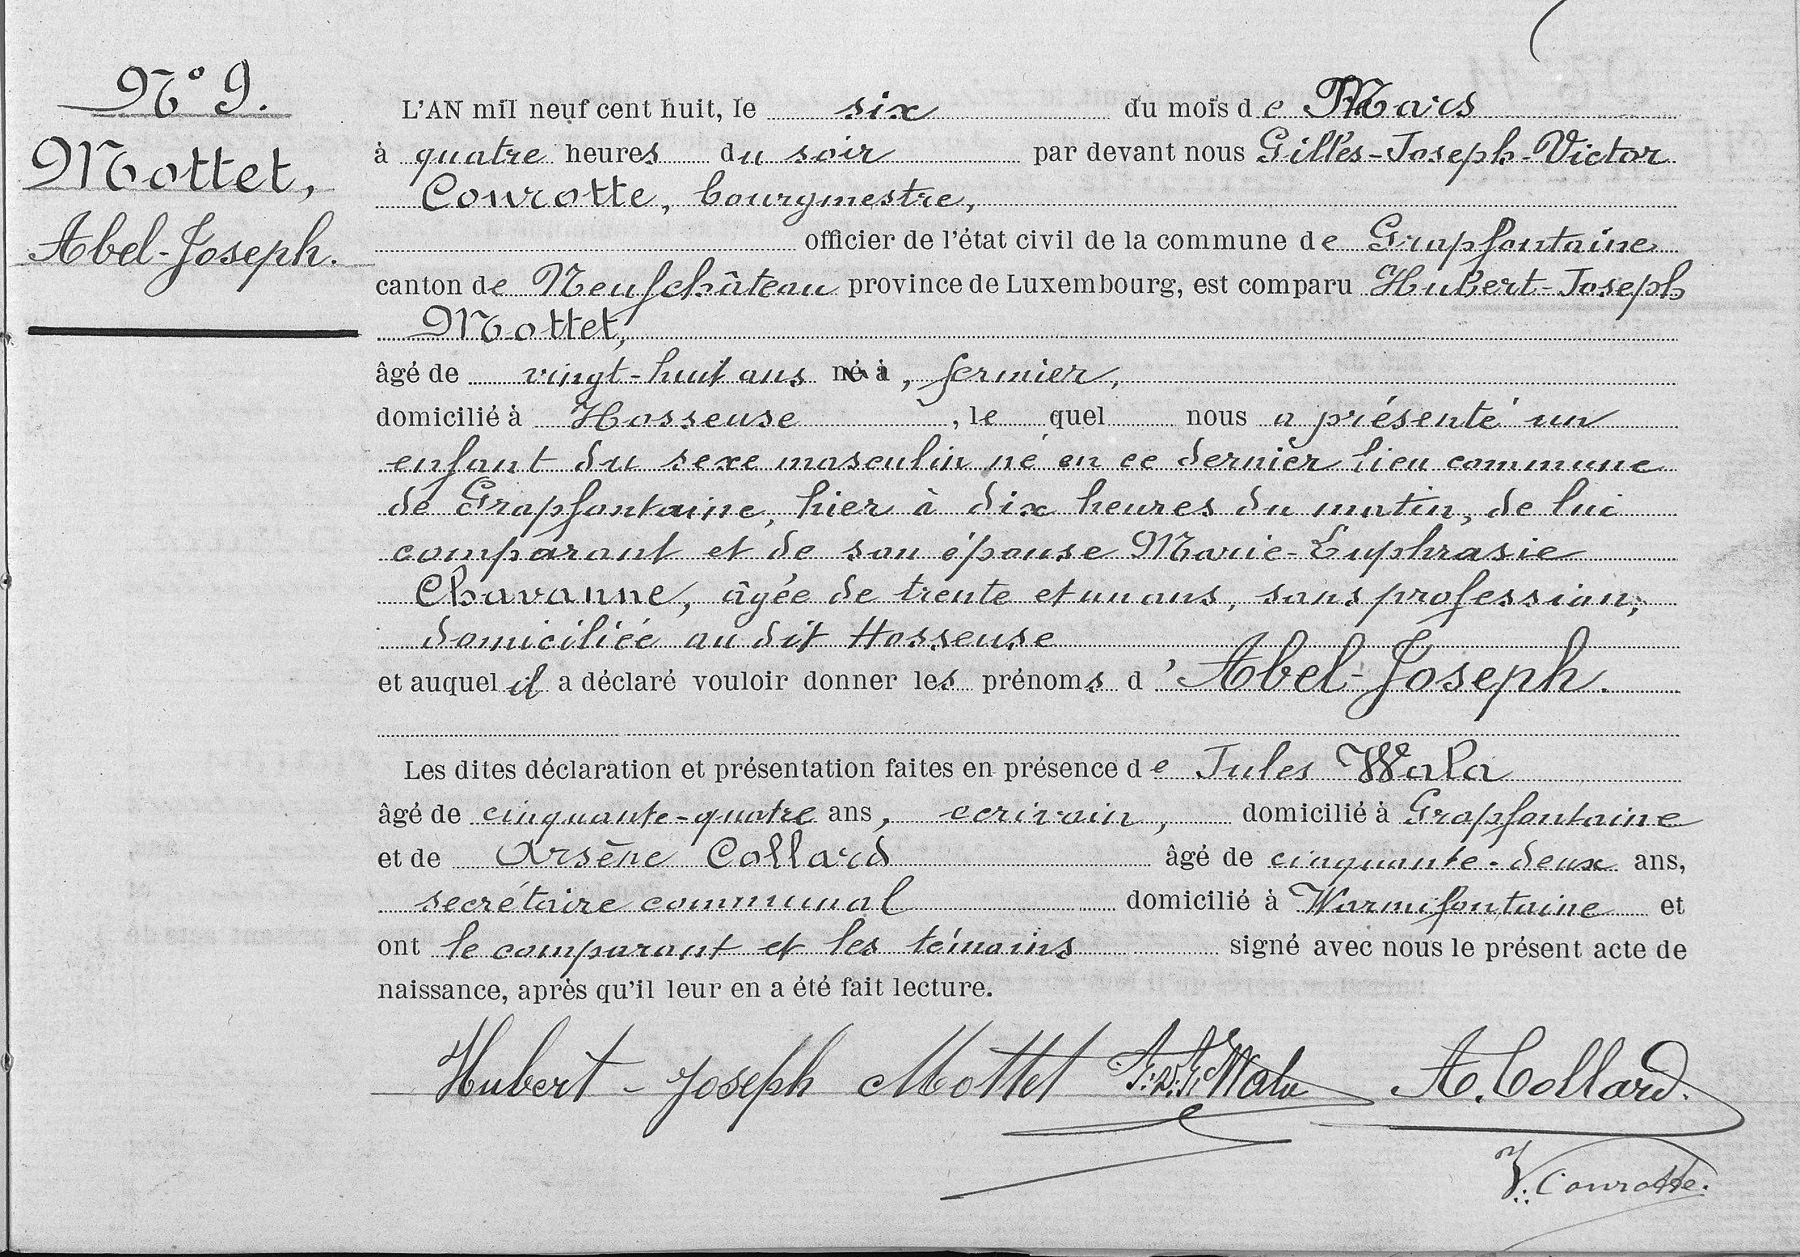 N° 9.
Mottet,
Abel-Joseph.
L'AN mil neuf cent huit, le six du mois de Mars
à quatre heures du soir par devant nous Gilles-Joseph-Victor
Courotte, bourgmestre,
officier de l'état civil de la commune de Grapfontaine
canton de Neufchâteau province de Luxembourg, est comparu Hubert-Joseph
Mottet,
âgé de vingt-huit ans né à, fermier,
domicilié à Hosseuse, le quel nous a présenté un
enfant du sexe masculin né en ce dernier lieu commune
de Grapfontaine, hier à dix heures du matin, de lui
comparant et de son épouse Marie-Euphrasie
Chavanne, âgée de trente et un ans, sans profession,
domiciliée au dit Hosseuse
et auquel il a déclaré vouloir donner les prénoms d'Abel-Joseph.
Les dites déclaration et présentation faites en présence de Jules Wala
âgé de cinquante-quatre ans, ecrivain, domicilié à Grapfontaine
et de Arsène Collard âgé de cinquante-deux ans,
secrétaire communal domicilié à Warmifontaine et
ont le comparant et les témoins signé avec nous le présent acte de
naissance, après qu'il leur en a été fait lecture.
Hubert-Joseph Mottet Wala A. Collard.
V. Courotte.